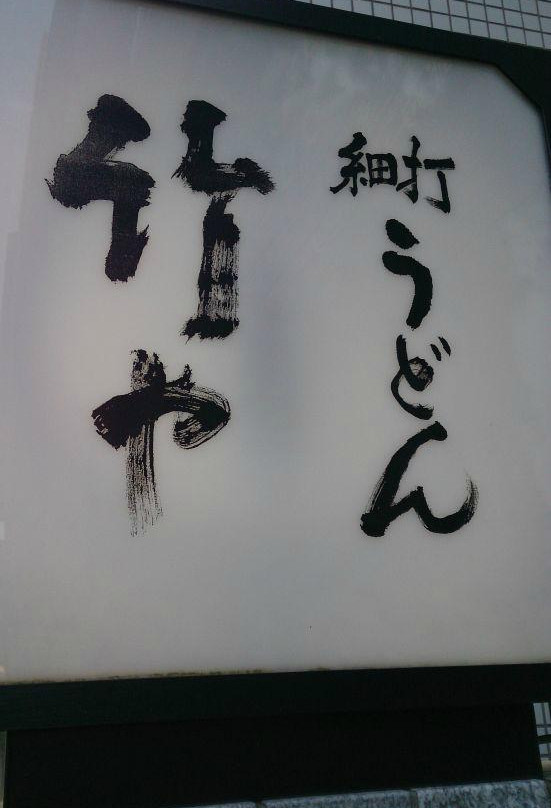 細打
うどん
竹や